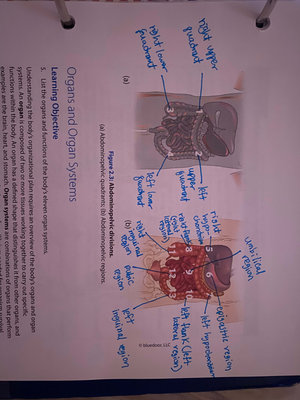 right upper
quadrant
right lower
quadrant
upper left
quadrant
left lower
quadrant
(a)
right
hypo-
chondriac
region
umbilical
region
epigastric region
left hypochondriac
right
inguinal
region
pubic
region
left
inguinal region
left flank (left
lateral region)
5
6
8
9
12
13
(b)
© bluedoor, LLC
Figure 2.3. Abdominopelvic divisions.
(a) Abdominopelvic quadrants; (b) Abdominopelvic regions.
Organs and Organ Systems
Learning Objective
5. List the organs and functions of the body's eleven organ systems.
Understanding the body's organizational plan requires an overview of the body's organs and organ
systems. An organ is composed of two or more tissues working together to carry out specific
functions within the body. An organ has a defined shape that distinguishes it from other organs, and
examples are the brain, heart, and stomach. Organ systems are combinations of organs that perform